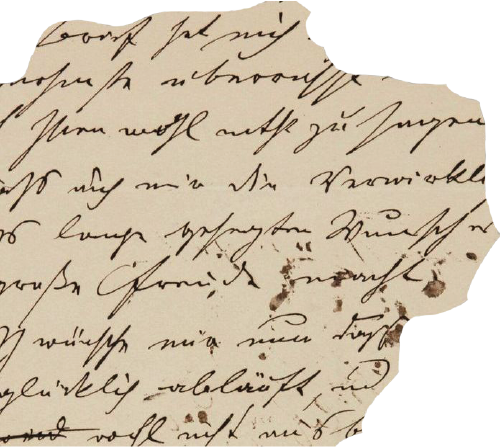 Brief hat mich
überrascht
Ihnen wohl nicht zu sagen
auch mir die Verwirkl
lange gehegten Wunsches
große Freude macht
wünsche nur nun daß
glücklich abläuft und
wohl nicht aus b